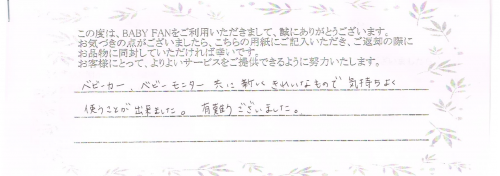 この度は、BABY FANをご利用いただきまして、誠にありがとうございます。
お気づきの点がございましたら、こちらの用紙にご記入いただき、ご返却の際に
お品物に同封していただければ幸いです。
お客様にとって、よりよいサービスをご提供できるように努力いたします。
ベビーカー、ベビーモニター 共に 新しく きれいなもので 気持ちよく
使うことが 出来ました。 有難うございました。